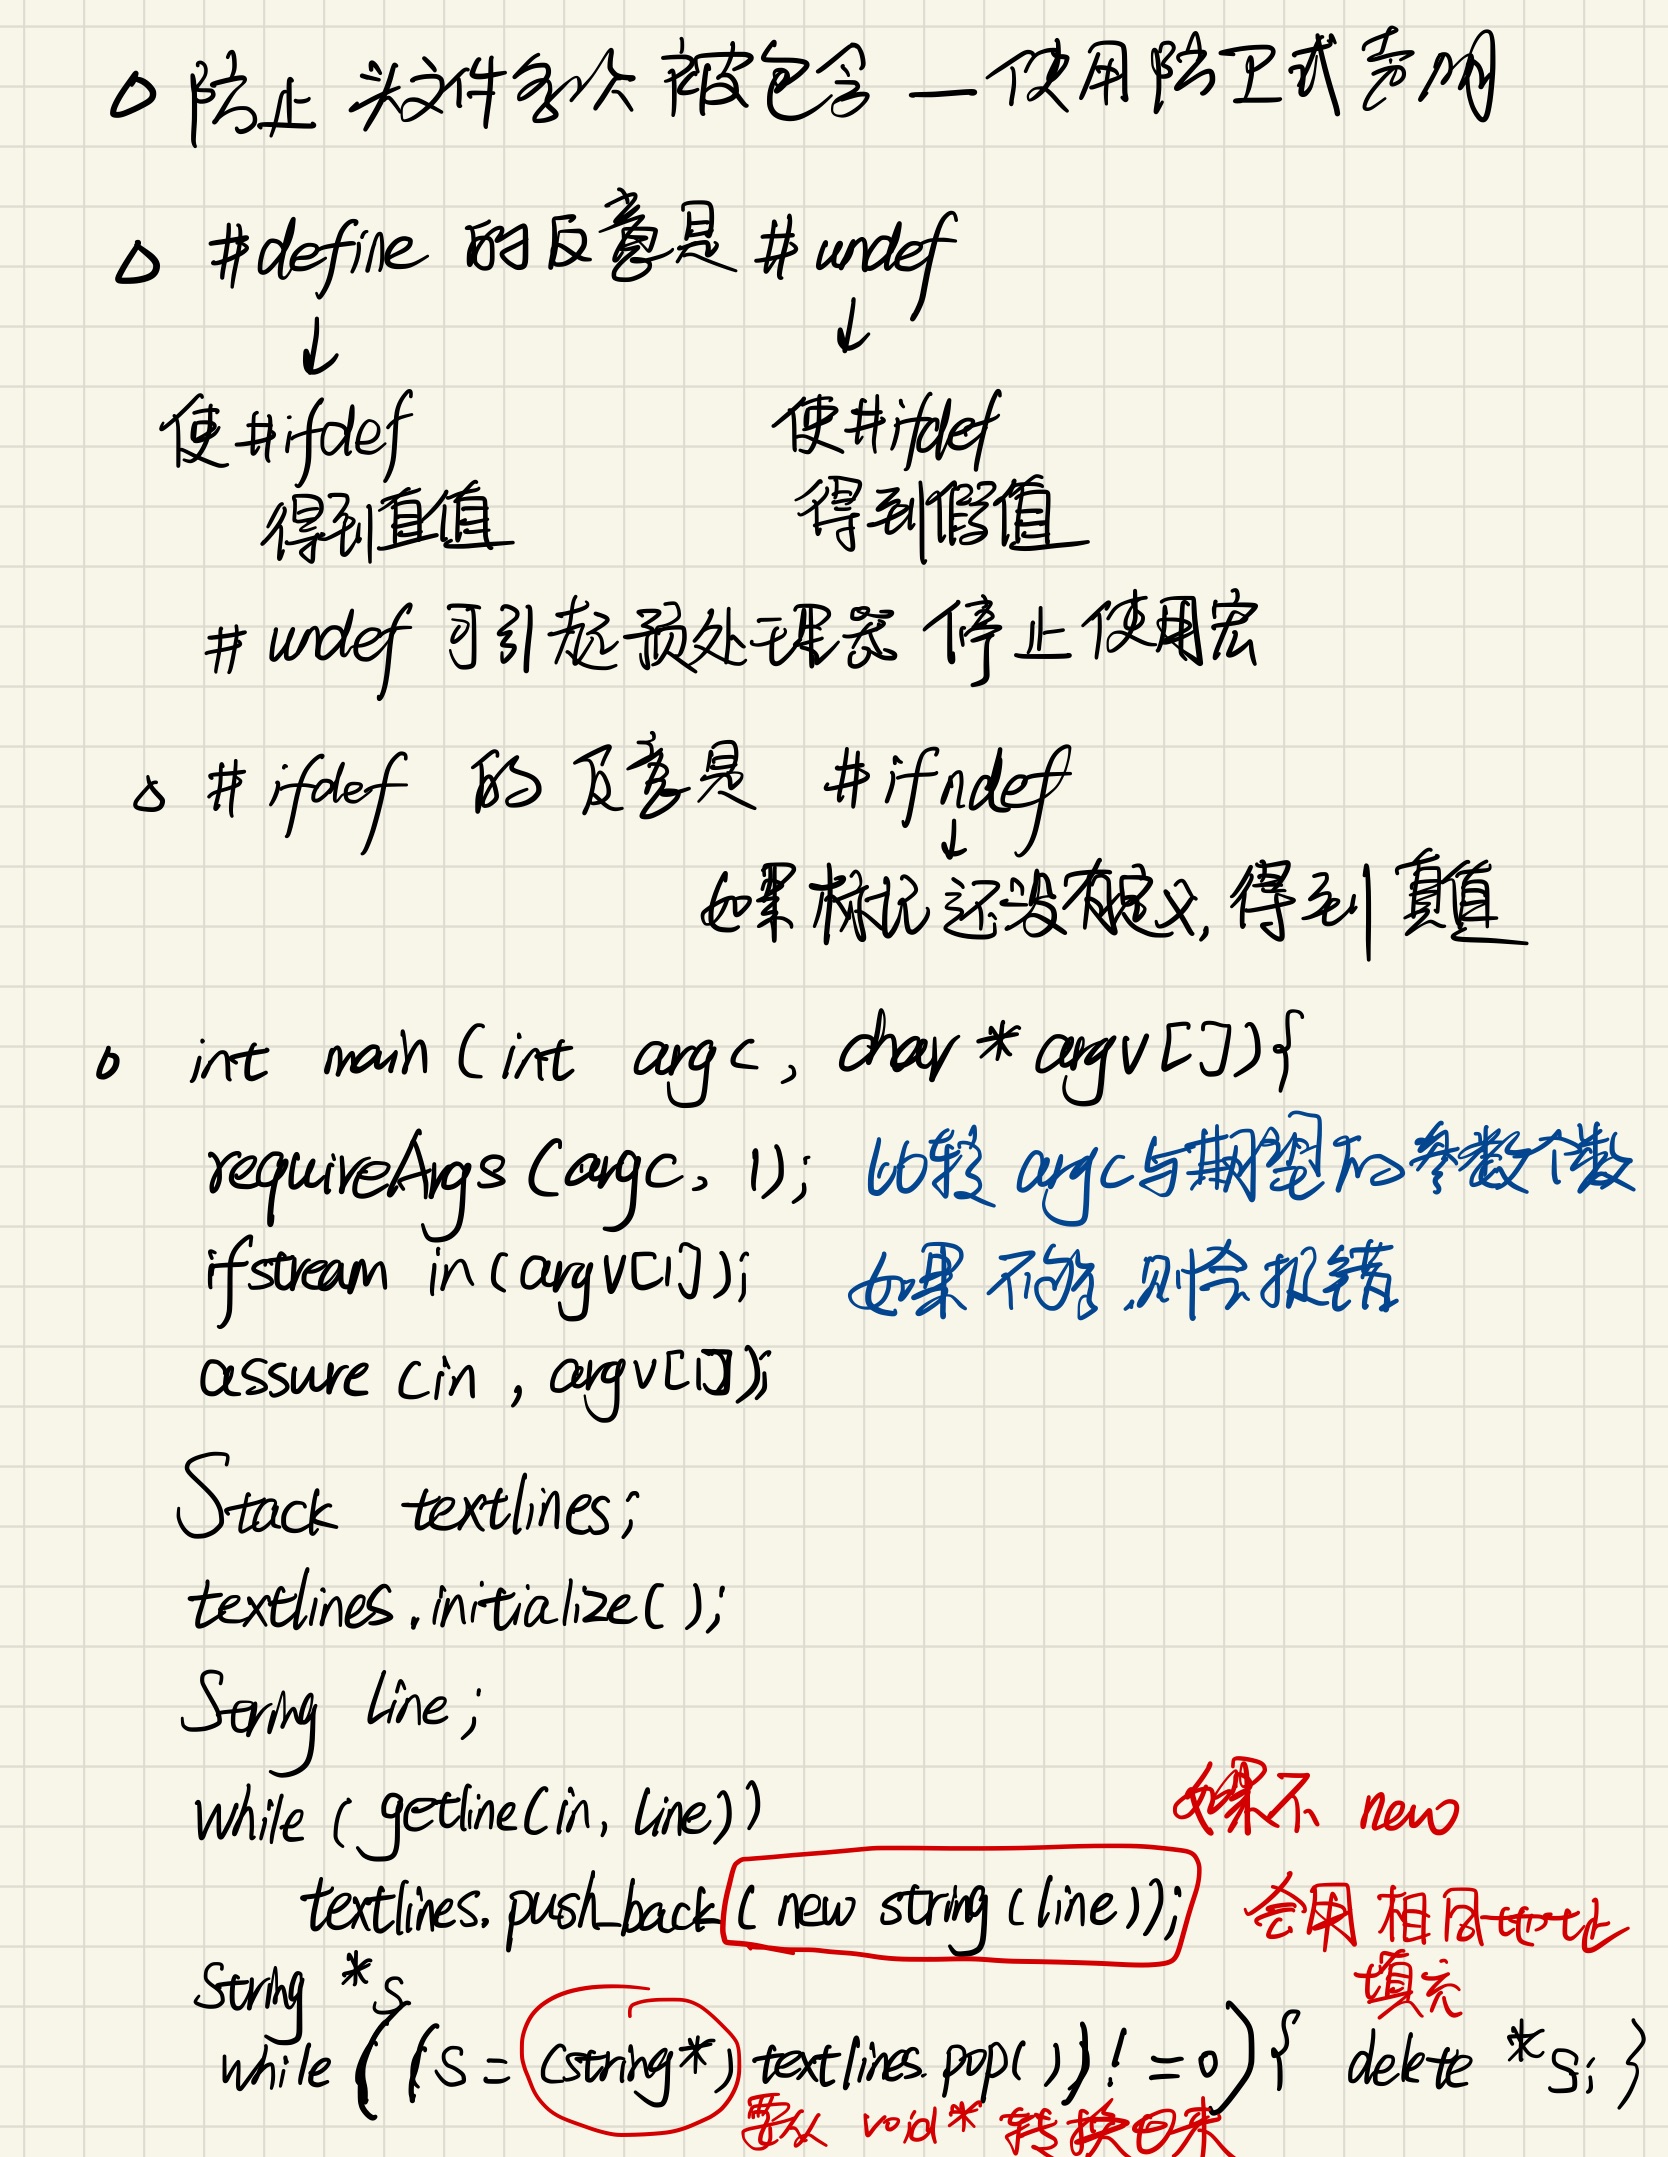 防止头文件多次被包含 — 使用防卫式声明
#define 的反意是 #undef
↓ ↓
使#ifdef 使#ifdef
得到真值 得到假值
#undef 可引起预处理器停止使用宏
#ifdef 的反意是 #ifndef
↓
如果标记还没有定义, 得到真值
int main (int argc, char * argv[]){
requireArgs (argc, 1); 比较 argc与期望的参数个数
ifstream in(argv[1]); 如果不够,则会报错
assure (in, argv[1]);
Stack textlines;
textlines.initialize();
String line;
while (getline(in, line)) 如果不 new
textlines.push_back( new string (line)); 会用相同
填充
String *s
while ((s = (string*) textlines.pop()) != 0) { delete *s; }
要从 void* 转换回来